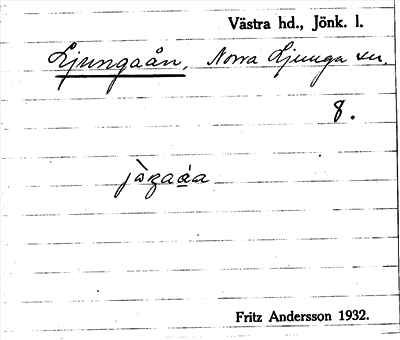 Västra hd., Jönk. l.
Ljungaån, Norra Ljunga sn.
8.
Fritz Andersson 1932.